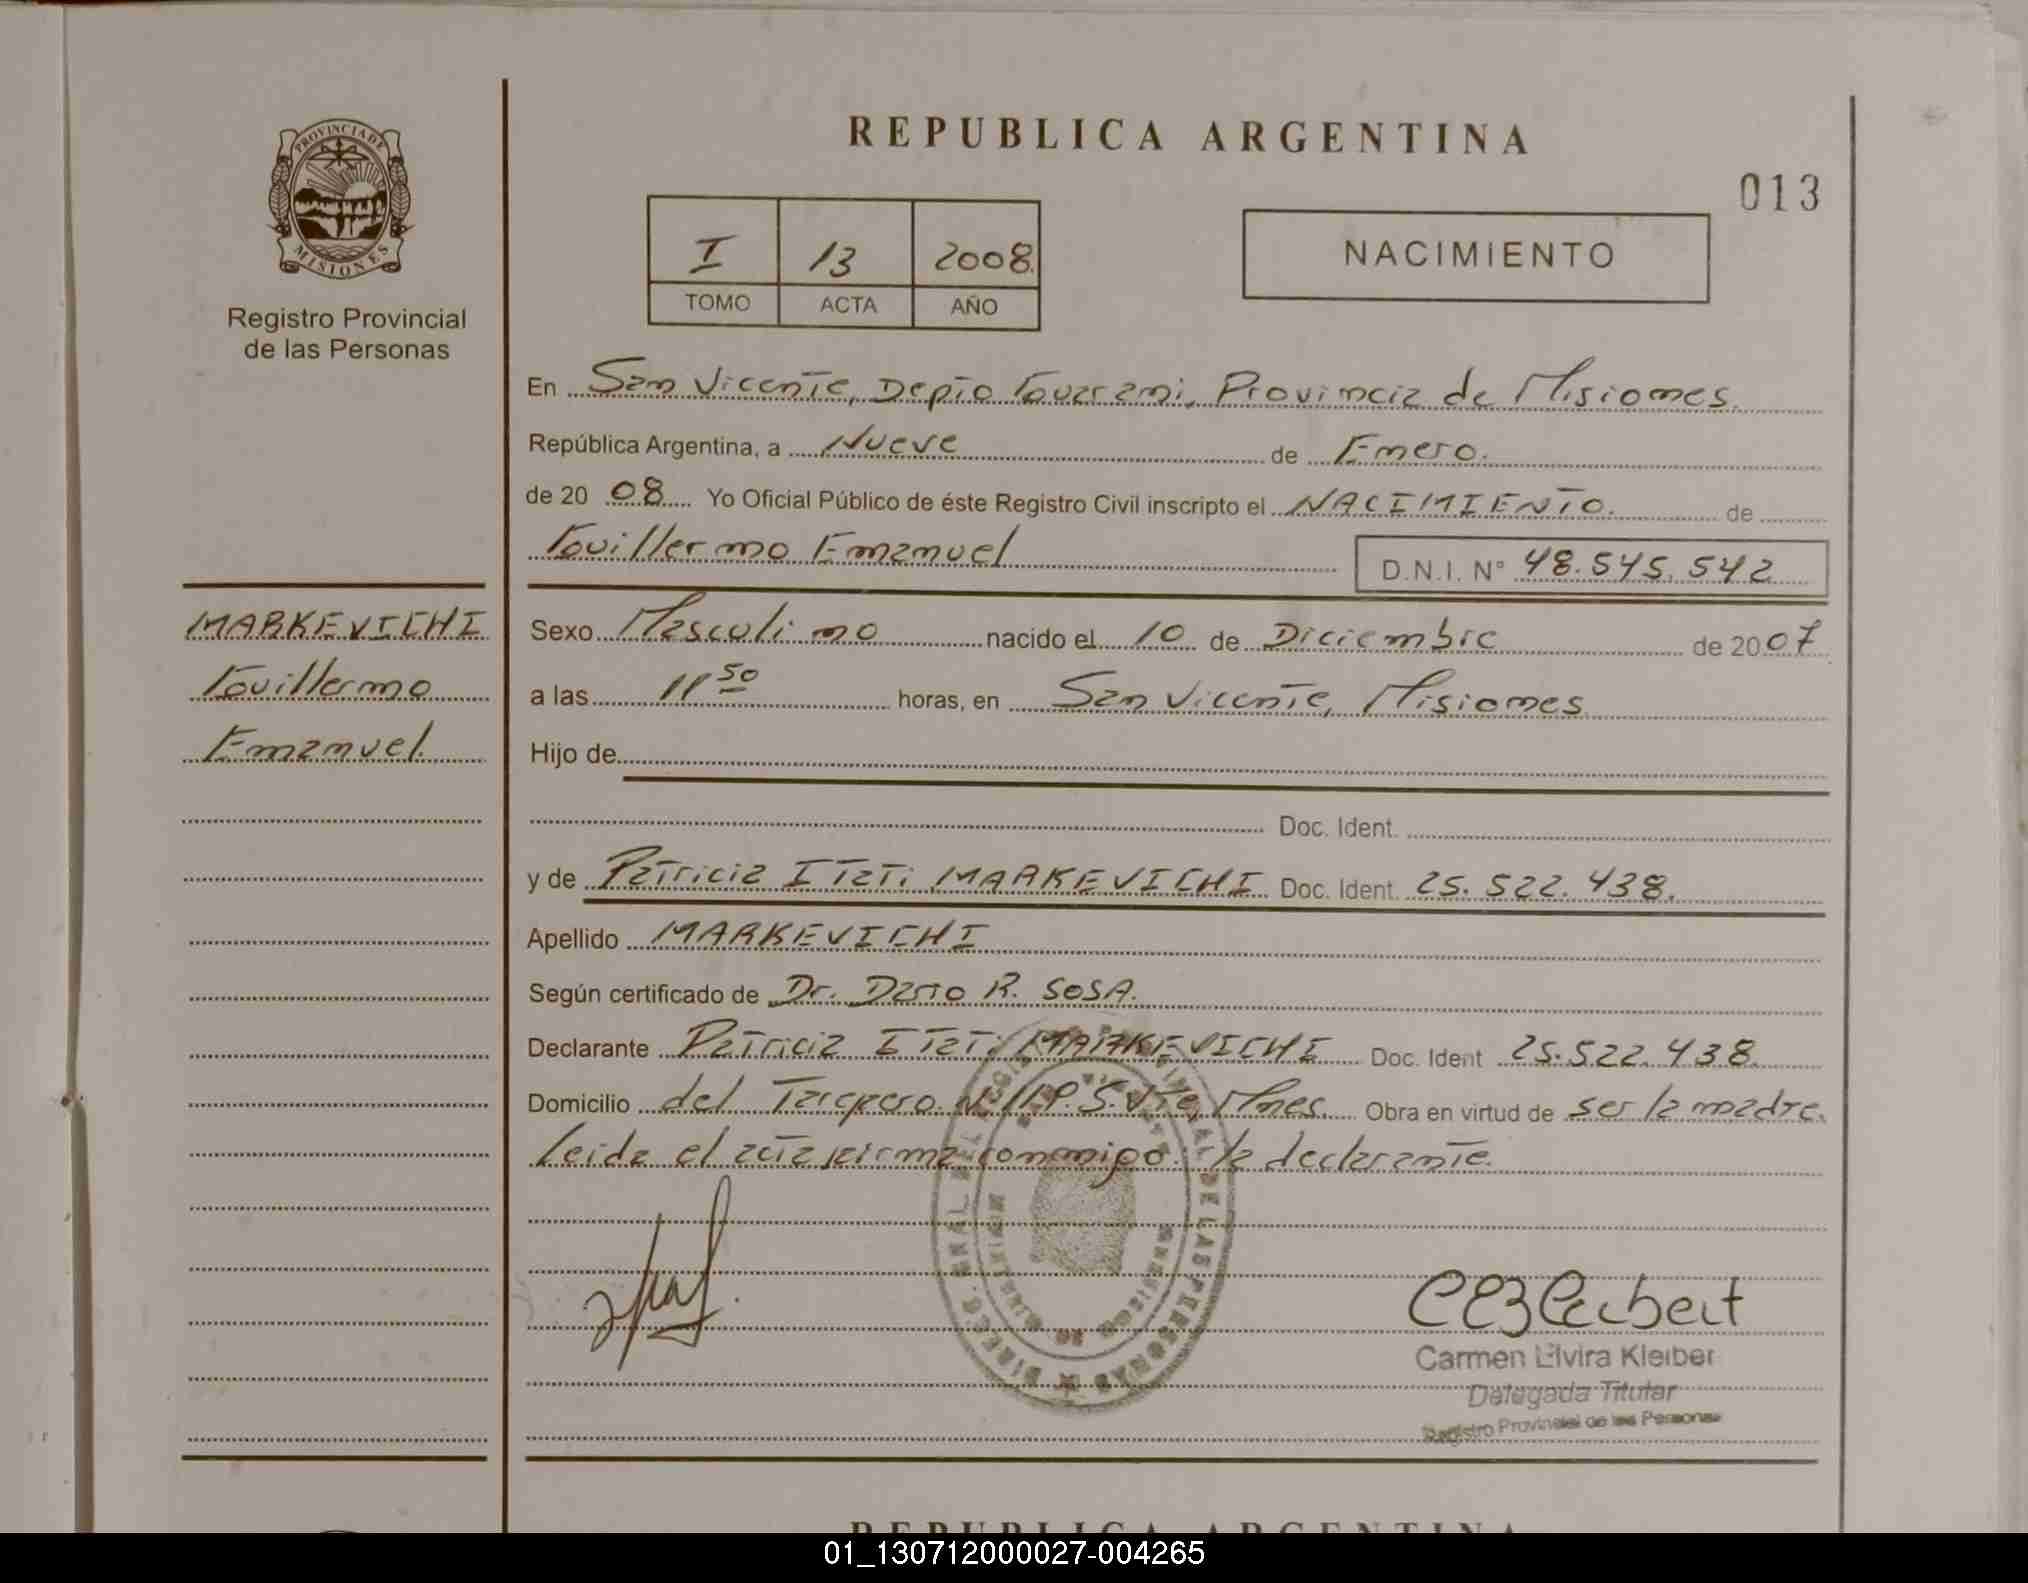 REPUBLICA ARGENTINA
013
PROVINCIA DE
MISIONES
Registro Provincial
de las Personas
I 13 2008.
TOMO ACTA AÑO
NACIMIENTO
En San Vicente, Depto Guarani, Provincia de Misiones.
República Argentina, a Nueve de Enero.
de 20 08 Yo Oficial Público de éste Registro Civil inscripto el NACIMIENTO. de
Guillermo Emanuel
D.N.I. N° 48.545.542
MARKEVICHI
Guillermo
Emanuel.
Sexo Masculino nacido el 10 de Diciembre de 2007
a las 11 50 horas, en San Vicente, Misiones
Hijo de
Doc. Ident.
y de Patricia Itati MARKEVICHI Doc. Ident. 25.522.438.
Apellido MARKEVICHI
Según certificado de Dr. Dario R. SOSA.
Declarante Patricia Itati MARKEVICHI Doc. Ident 25.522.438.
Domicilio del S.Vte, Mnes. Obra en virtud de ser la madre.
Leida el acta firma conmigo. la declarante.
Carmen Elvira Kleiber
Delegada Titular
Registro Provincial de las Personas
REPUBLICA ARGENTINA
01_130712000027-004265